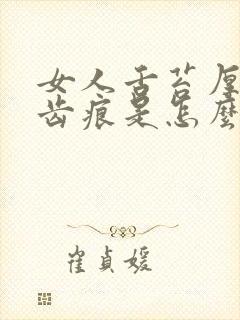 女人舌苔厚
齿痕是怎麼
崔贞媛